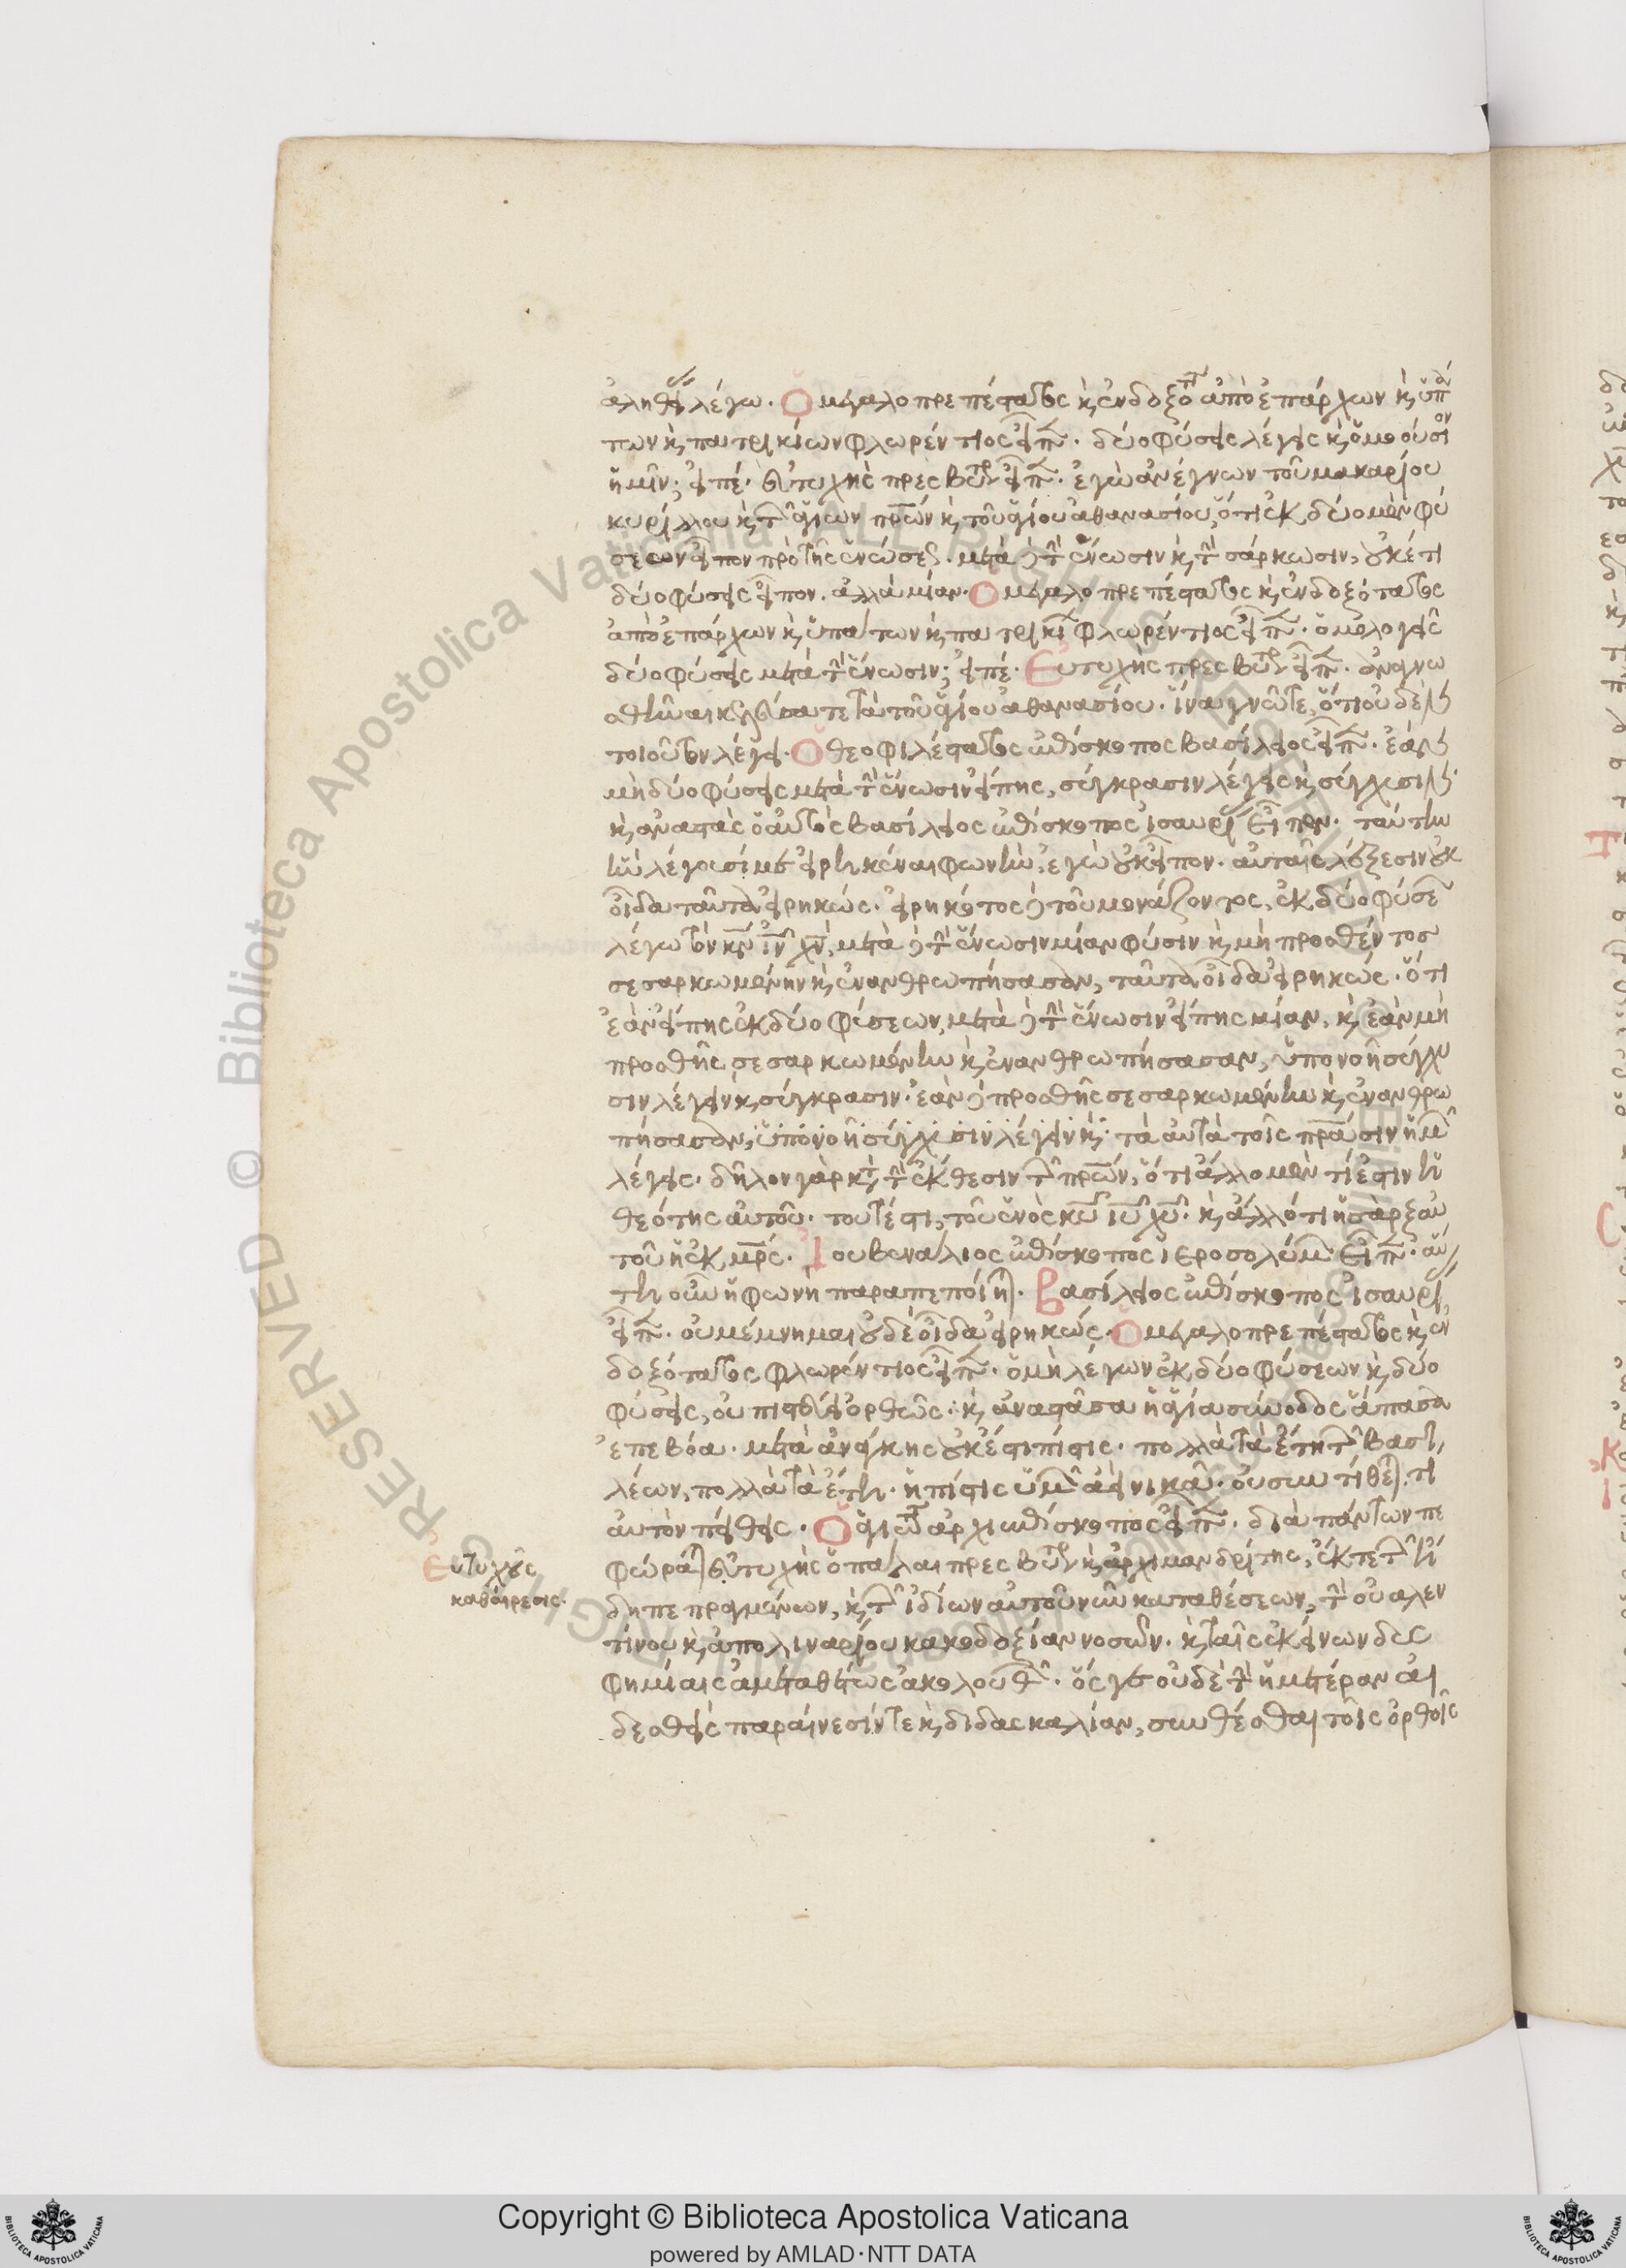 ἀληθῶς λέγω. Ὁ μεγαλοπρεπέστατος κ ἐνδοξοτ ἀπὸ ἐπάρχων κ ὑπά
των κ πατρικίων φλωρέντιος εἶπ. δύο φύσεις λέγεις κ ὁμοούσιον
ἡμῖν; εἰπέ. εὐτυχὴς πρεσβύτερ εἶπ. ἐγὼ ἀνέγνων τοῦ μακαρίου
κυρίλλου κ τῶν ἁγίων πρων κ τοῦ ἁγίου ἀθανασίου, ὅτι ἐκ δύο μὲν φύ
σεων εἶπον πρὸ τῆς ἑνώσεως. μετὰ δὲ τὴν ἕνωσιν κ τὴν σάρκωσιν, οὐκέτι
δύο φύσεις εἶπον. ἀλλὰ μίαν. Ὁ μεγαλοπρεπέστατος κ ἐνδοξότατος
ἀπὸ ἐπάρχων κ ὑπάτων κ πατρικι φλωρέντιος εἶπ. ὁμολογεῖς
δύο φύσεις μετὰ τὴν ἕνωσιν; εἰπέ. Εὐτυχὴς πρεσβύτερ εἶπ. ἀναγνω
σθῆναι κελεύσατε τὰ τοῦ ἁγίου ἀθανασίου. ἵνα γνῶτε, ὅτι οὐδὲν
τοιοῦτον λέγει. Ὁ θεοφιλέστατος ἐπίσκοπος βασίλειος εἶπ. ἐὰν
μὴ δύο φύσεις μετὰ τὴν ἕνωσιν εἴπης, σύγκρασιν λέγεις κ σύγχυσιν.
κ ἀναστὰς ὁ αὐτὸς βασίλειος ἐπίσκοπος ἰσαυρίας εἶπεν. ταύτην
ἣν λέγουσί με εἰρηκέναι φωνὴν, ἐγὼ οὐκ εἶπον. αὐταῖς λέξεσιν οὐκ
οἶδα ταῦτα εἰρηκώς. εἰρηκότος δὲ τοῦ μονάζοντος, ἐκ δύο φύσεων
λέγω τὸν κν ιν χν, μετὰ δὲ τὴν ἕνωσιν μίαν φύσιν κ μὴ προσθέντος
σεσαρκωμένην κ ἐνανθρωπήσασαν, ταῦτα οἶδα εἰρηκώς. ὅτι
ἐὰν εἴπης ἐκ δύο φύσεων, μετὰ δὲ τὴν ἕνωσιν εἴπης μίαν, κ ἐὰν μὴ
προσθῆς σεσαρκωμένην κ ἐνανθρωπήσασαν, ὑπονοῆ σύγχυ
σιν λέγειν κ σύγκρασιν. ἐὰν δὲ προσθῆς σεσαρκωμένην κ ἐνανθρω
πήσασαν, ὑπονοῆ σύγχυσιν λέγειν κ τὰ αὐτὰ τοῖς πράσιν ἡμῶν
λέγεις. δῆλον γὰρ κατὰ τὴν ἔκθεσιν τῶν πρων, ὅτι ἄλλο μέν τί ἐστιν ἡ
θεότης αὐτοῦ. τουτέστι, τοῦ ἑνὸς κυ ιυ χυ. κ ἄλλό τι ἡ σὰρξ αὐ
τοῦ ἡ ἐκ μρς. Ἰουβενάλιος ἐπίσκοπος ἱεροσολύμων εἶπ. αὕ
τη οὖν ἡ φωνὴ παραπεποίηται. Βασίλειος ἐπίσκοπος ἰσαυρίας
εἶπ. οὐ μέμνημαι οὐδὲ οἶδα εἰρηκώς. Ὁ μεγαλοπρεπέστατος κ ἐν
δοξότατος φλωρέντιος εἶπ. ὁ μὴ λέγων ἐκ δύο φύσεων κ δύο
φύσεις, οὐ πιστεύει ὀρθῶς. κ ἀναστᾶσα ἡ ἁγία σύνοδος ἅπασα
ἐπεβόα. μετὰ ἀνάγκης οὐκ ἔστι πίστις. πολλὰ τὰ ἔτη τῶν βασι
λέων, πολλὰ τὰ ἔτη. ἡ πίστις ὑμῶν ἀεὶ νικᾷ. οὐ συντίθεται. τί
αὐτὸν πείθεις. Ὁ ἁγιώτατος ἀρχιεπίσκοπος εἶπ. διὰ πάντων πε
φώραται εὐτυχὴς ὁ πάλαι πρεσβύτερ κ ἀρχιμανδρίτης, ἔκ τε τῶν ἤ
δη πεπραγμένων, κ τῶν ἰδίων αὐτοῦ νῦν καταθέσεων, τὴν οὐαλεν
τίνου κ ἀπολιναρίου κακοδοξίαν νοσῶν. κ ταῖς ἐκείνων δυσ
φημίαις ἀμεταθέτως ἀκολουθῶν. ὅς γε οὐδὲ τὴν ἡμετέραν αἰ
δεσθεὶς παραίνεσίν τε κ διδασκαλίαν, συνθέσθαι τοῖς ὀρθοῖς
Εὐτυχοῦς
καθαίρεσις.
Copyright © Biblioteca Apostolica Vaticana
powered by AMLAD·NTT DATA